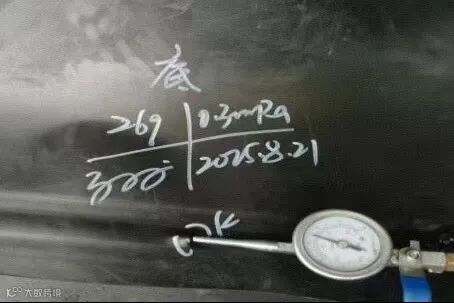 底
269 0.3mpa
3000 2025.8.21
大数跨境